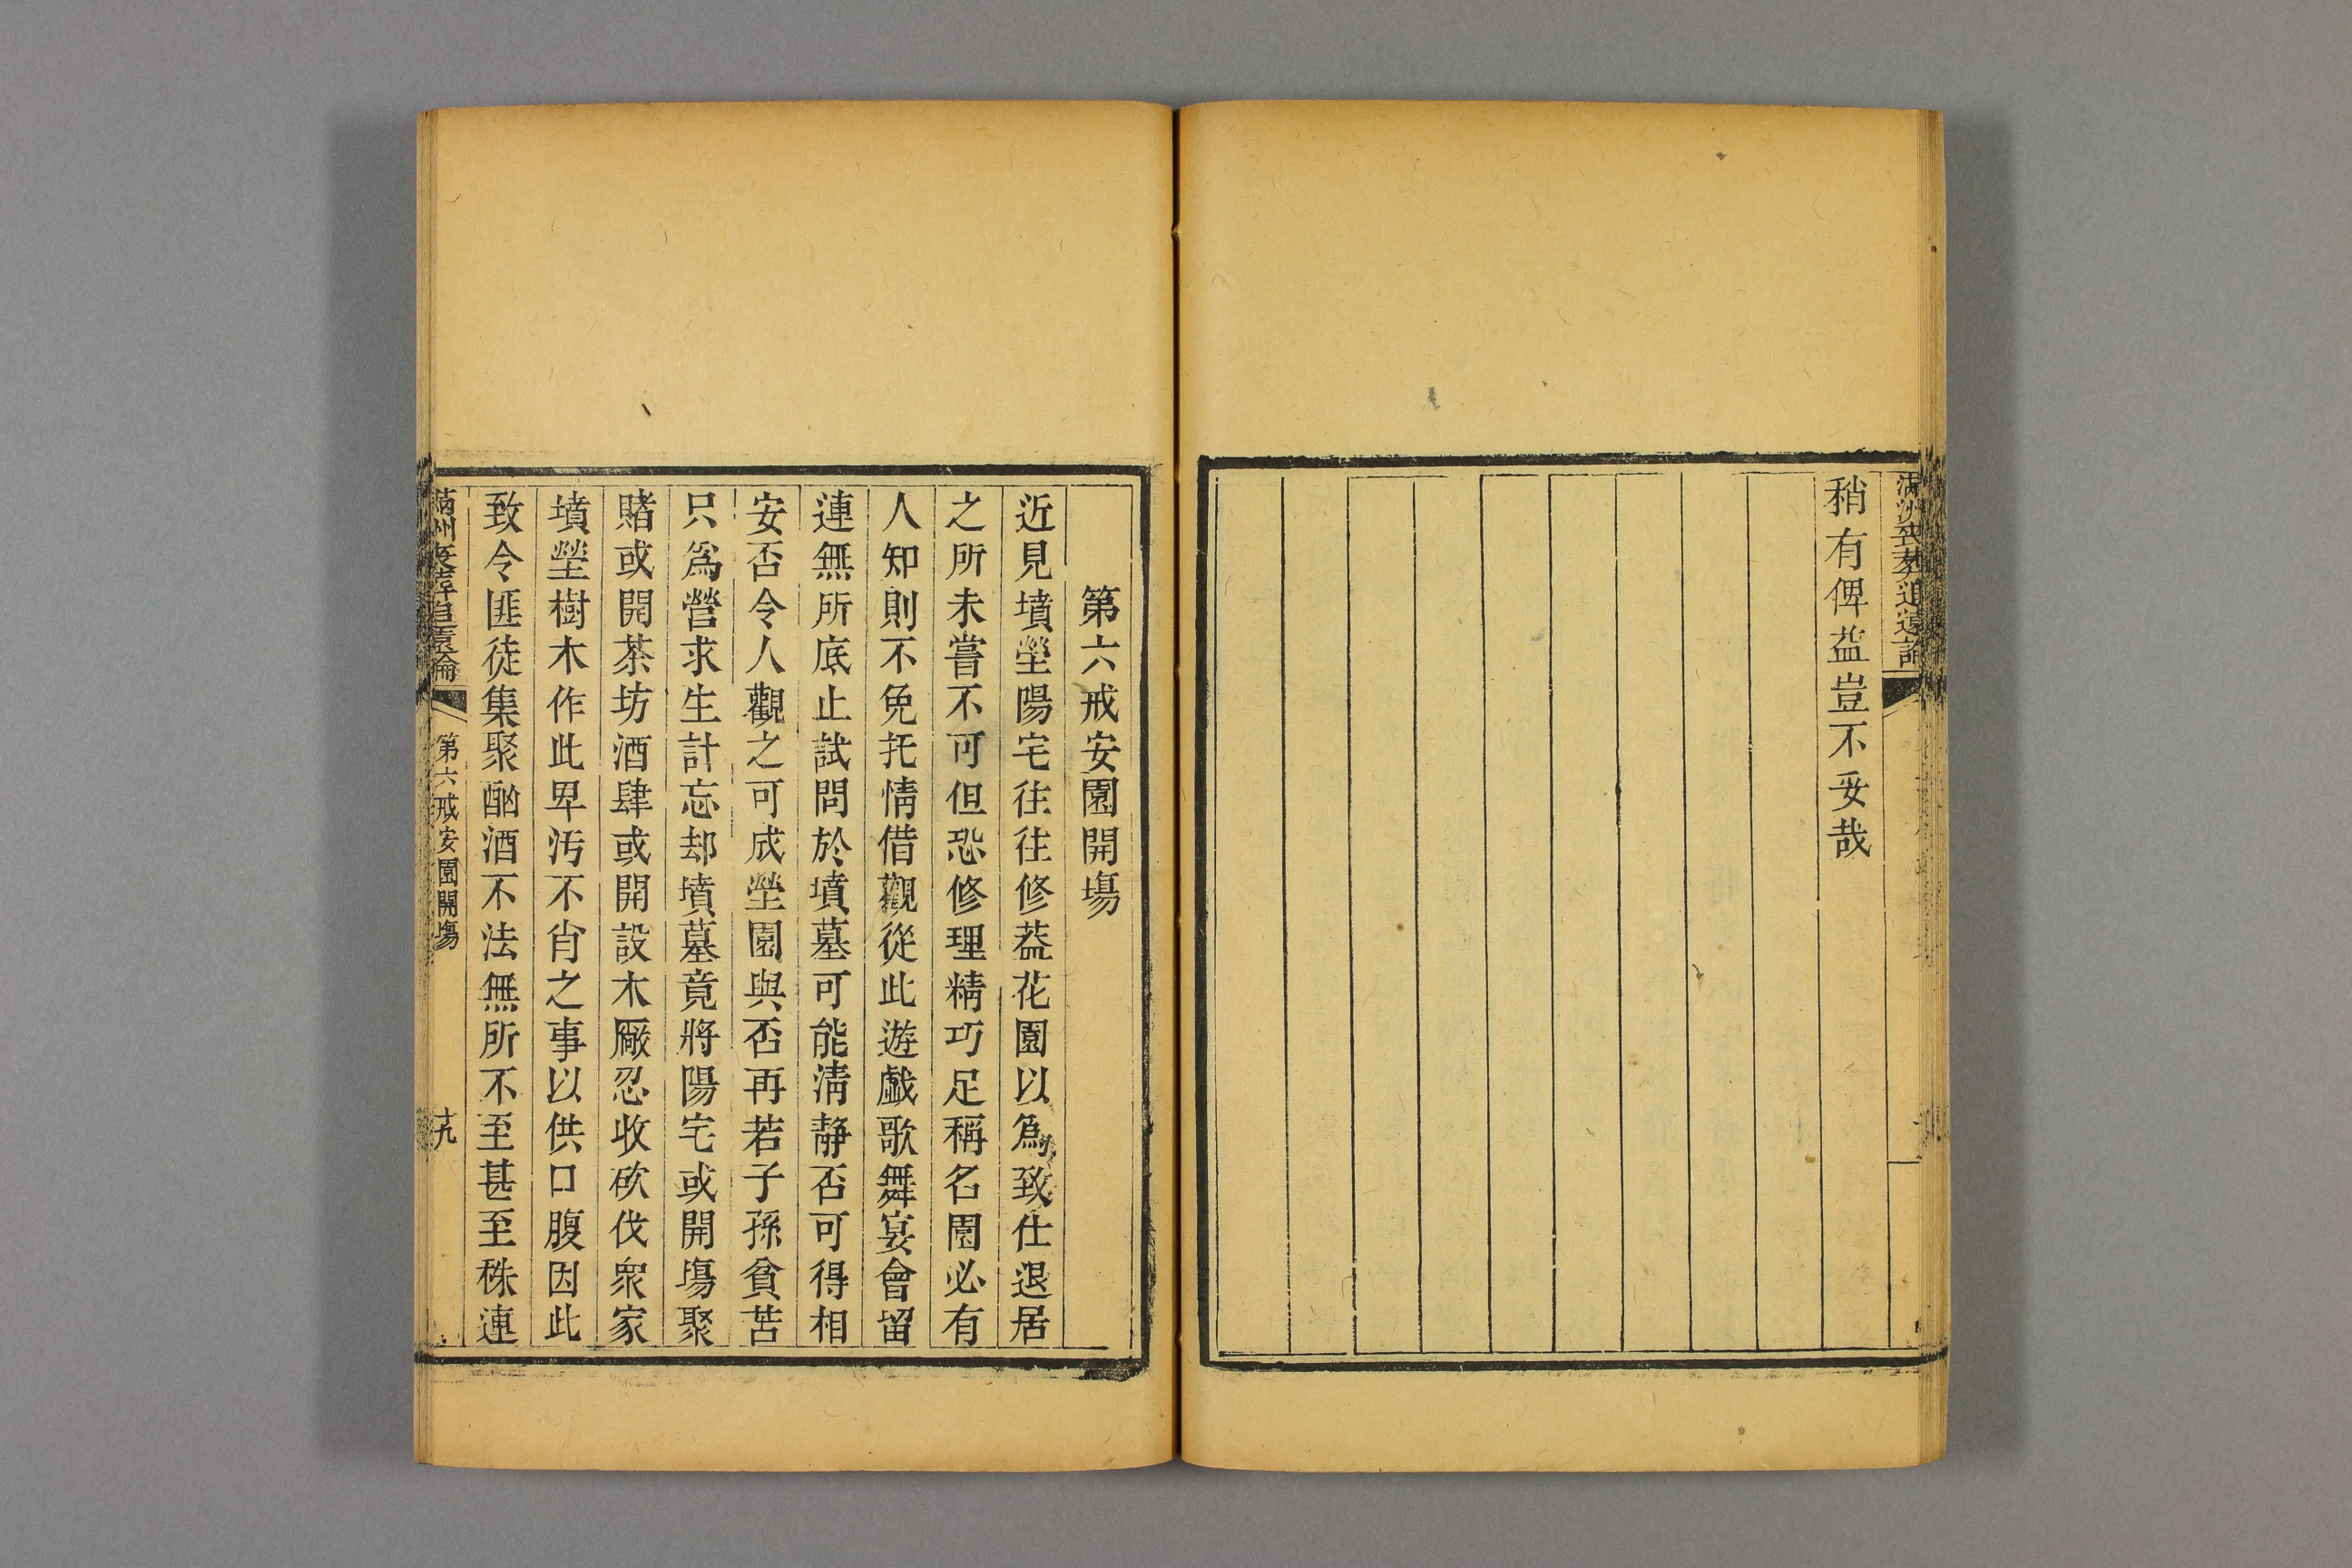 滿洲喪葬追遠論
稍有俾益豈不妥哉
第六戒安園開塲
近見墳塋陽宅往往修葢花園以爲致仕退居
之所未嘗不可但恐修理精巧足稱名園必有
人知則不免托情借觀從此遊戲歌舞宴會留
連無所底止試問於墳墓可能淸靜否可得相
安否令人觀之可成塋園與否再若子孫貧苦
只爲營求生計忘却墳墓竟將陽宅或開塲聚
賭或開茶坊酒肆或開設木厰忍收砍伐衆家
墳塋樹木作此卑汚不肖之事以供口腹因此
致令匪徒集聚酗酒不法無所不至甚至株連
滿州喪葬追遠論
第六戒安園開塲
十九